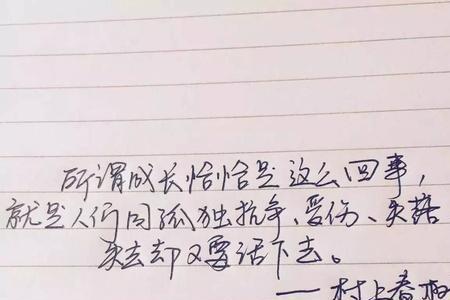 所谓成长恰恰是这么回事,
就是人们同孤独抗争、受伤、失落
失去却又要活下去。
——村上春树